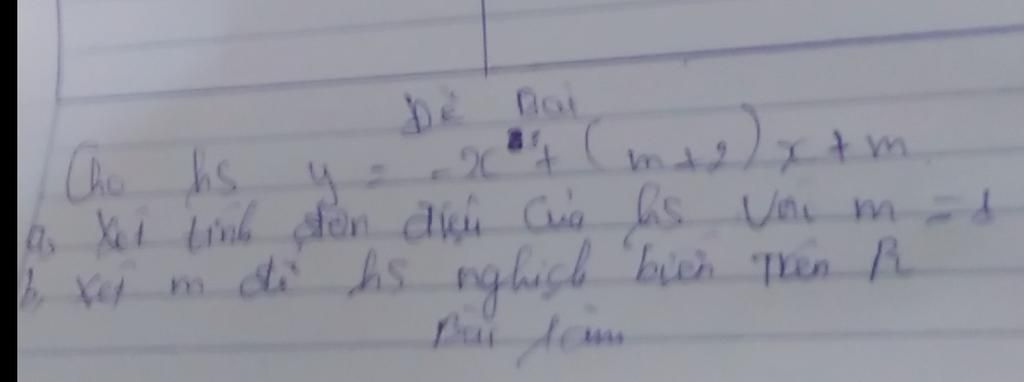 Đề Bài
Cho hs y = -x + (m+2)x + m
a, Xét tính đơn điệu của hs với m = 1
b, Xét m để hs nghịch biến trên R
Bài làm